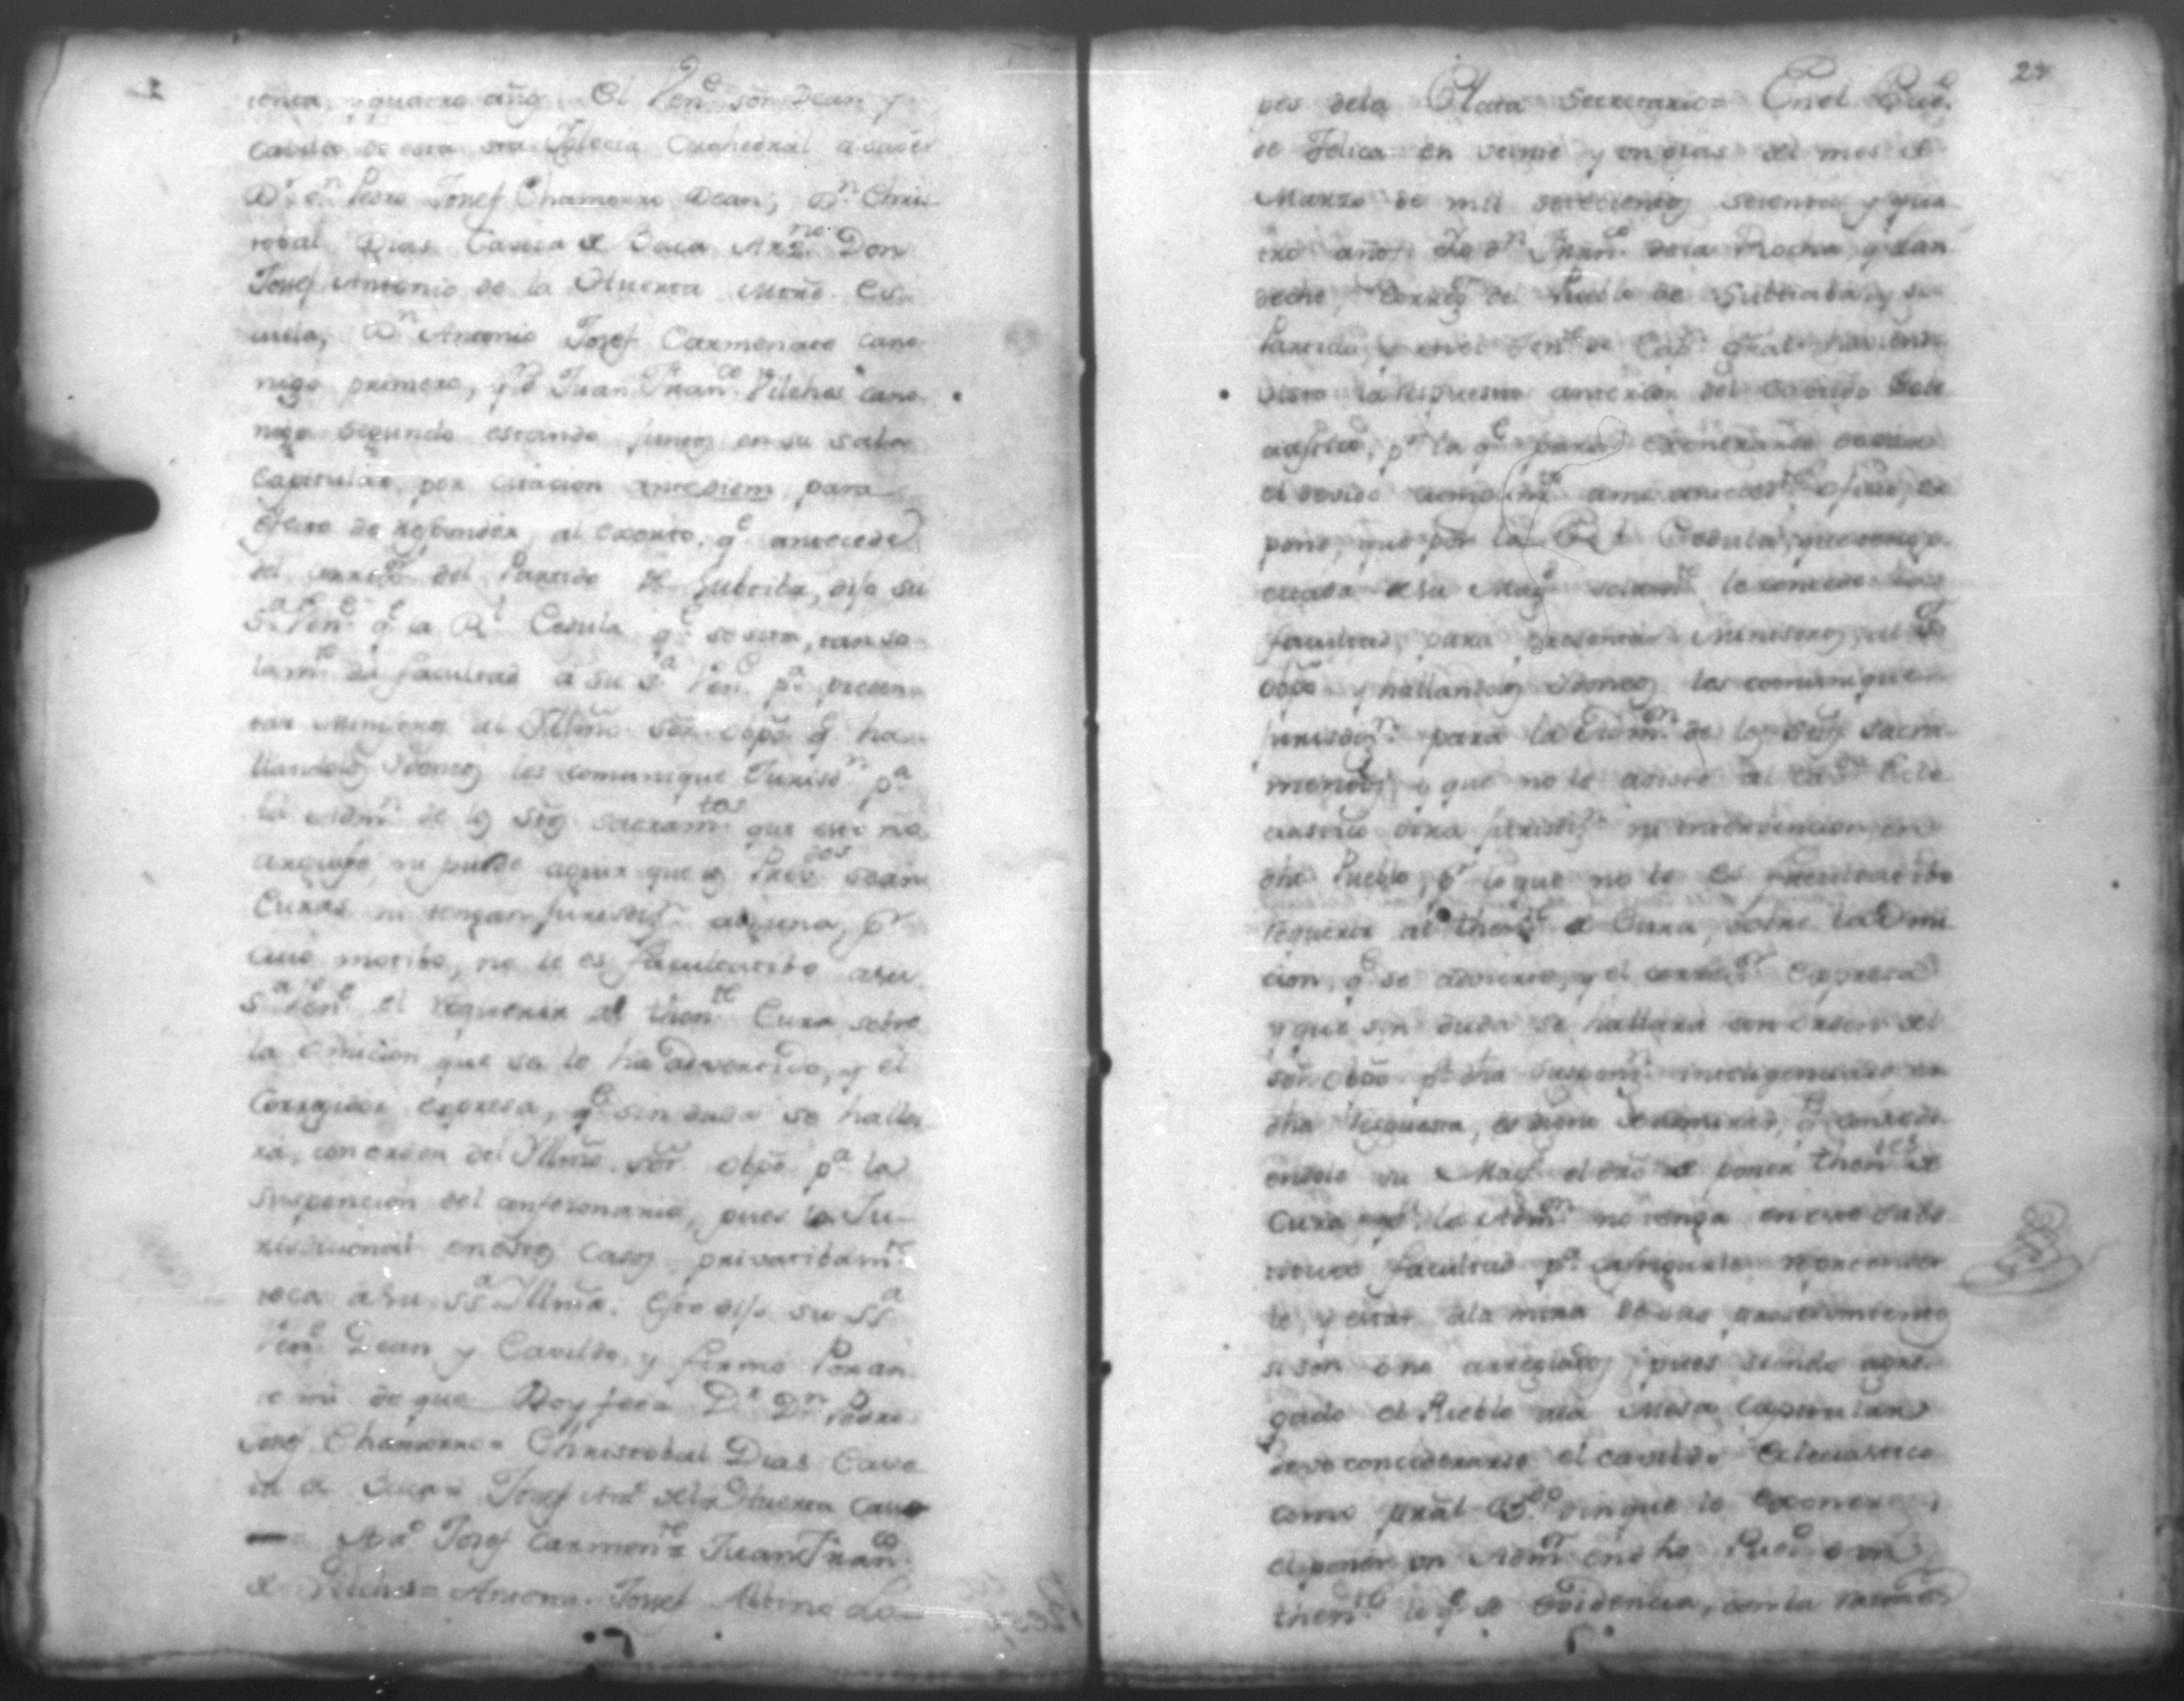 tenta, y quatro añs. El Vene. sor. Dean y
Cavildo de esta sta. Yglecia Cathedral a saver
Dr. dn. Pedro Josef Chamorro Dean, Dn. Chris
tobal Dias Caveza de Baca Arzno. Don
Josef Antonio de la Huerta Mtre. Es
cuela, Dn. Antonio Josef Carmenate cano
nigo primero, y dn. Juan Franco. Vilches cano
nigo segundo estando juntos en su sala
Capitular, por citacion antediem para
efecto de responder, al exorto, qe. antecede
del corregr. del Partido de Subtiba, dijo su
Sa. Vene. qe. la Rl. Cedula qe. se sita, tan so
lamte. da facultad á su Sa. Vene. pa. presen
tar Ministros al Yllmo. Sor. obpo. qe. ha
llandolos Ydoneos les comunique Jurisdn. pa.
la Admn. de los Stos. Sacramtos. que esto no
arguye, ni puede aguir que los Presdos. sean
Curas ni tengan jurisdisn. alguna, pr.
cuio motibo, no le es facultatibo a su
Sa. Vene. el requerir al thente. Cura sobre
la Omicion que se le ha advertido, y el
Corregidor expresa, qe. sin duda se halla
rá, con orden del Yllmo. Sor. obpo. pa. la
Suspencion del confesonario, pues la Ju
risdicional en estos casos, privatibamte.
toca a su SSa. Yllma. Esto dijo su SSa.
Vene. Dean y Cavildo, y firmo Por an
te mi de que Doy feé= Dr. Dn. Pedro
Josef Chamorro= Christobal Dias Cave
za de Baca= Josef Anto. de la Huerta Cano
— Anto. Josef Carmente.= Juan Franco.
de Vilches= Antemi. Josef Albino Lo
28
pes dela Plata Secretario= En el Puee.
de Telica en veinte y un dias del mes de
Marzo de mil setecientos setenta y qua
tro años. Yo dn. Franco. dela Rocha y Lan
decho, Corregr. del Pueblo de Subtiaba, y su
Partido, y en el Thente. de Capn. gral. haviendo
visto la respuesta anterior del Cavildo Ecle
ciastico, pr. la qe. para exonerarse
el devido cumplimto. á mi antecedte. oficio, ex
pone, que por la Rl. Cedula, que
de su Magd. solamte. le concede la
facultad para presentar Ministros, al Sr.
obpo. y hallandolos Ydoneos les comunique
jurisdisn. para la Admon. de los Stos. Sacra
mentos, y que no le asiste al Cavdo. Ecle
ciastico otra jurisdisn. ni intervencion en
dho. Pueblo, pr. lo que no le es facultatibo
requerir al thente. de Cura, sobre la Omi
cion, qe. se advierte, y el corregor. expresa
y que sin duda se hallará con orden del
Sor. obpo. pa. dha. suspenn. inteligenciado en
dha. respuesta, es digno de admirar, qe. conce
endole su Magd. el dro. de poner thentes. de
Cura pa. la Admn. no tenga en
facultad pa.
le, y estar ala mira de sus prosedimientos
si son ó no arreglados, pues siendo agre
gado el Pueblo ala Mesa Capitular
deve conciderarse el cavildo Eclesiastico
como pral. sin que le exonere
el poner un Admor. en dho. Puee. o un
thente. lo qe. se evidencia, con la razones